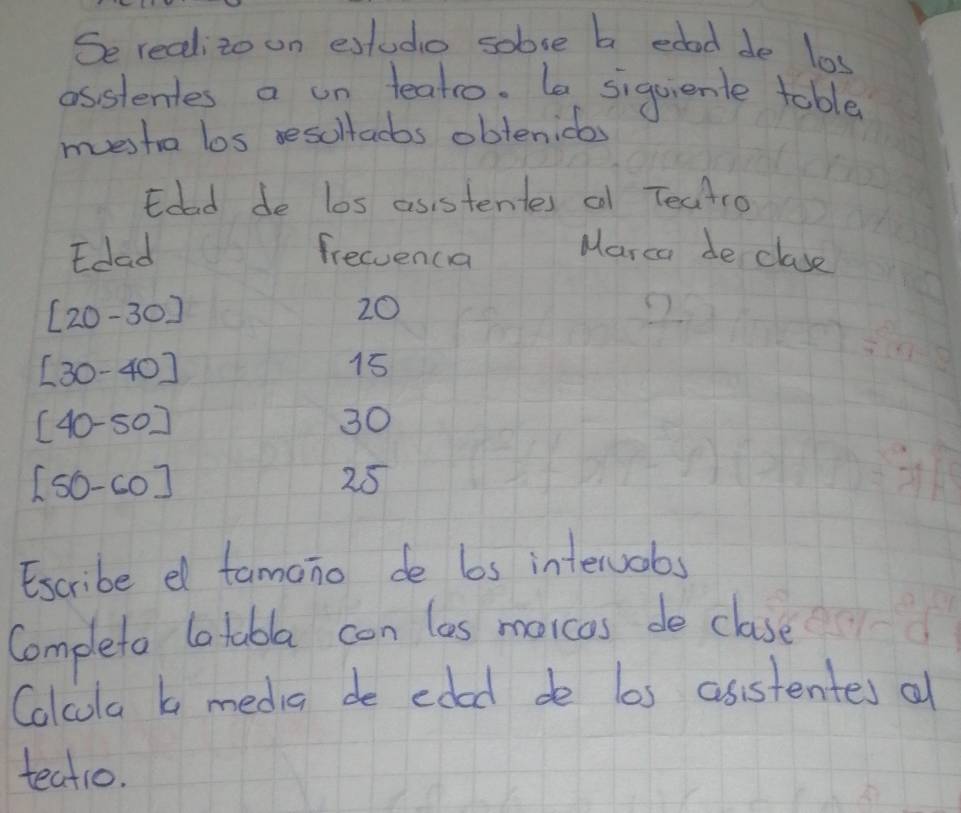 Se realizo un estudio sobre la edad de los
asistentes a un teatro. La siguiente tabla
muestra los resultados obtenidos
Edad de los asistentes al Teatro
Edad frecuencia Marca de clase
[20-30] 20
[30-40] 15
[40-50] 30
[50-60] 25
Escribe el tamaño de los intervalos
Completa la tabla con las marcas de clase
Calcula la media de edad de los asistentes al
teatro.